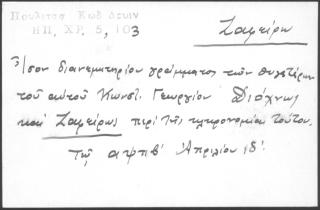 Πουλίτσα Κώδ Δεων
ΗΠ, ΧΡ. 5, 103
Ζαφείρω
Ἴσον διανεμητηρίου γράμματος τῶν θυγατέρων
τοῦ αὐτοῦ Κωνστ. Γεωργίου Διάχνως
καὶ Ζαφείρως περὶ τῆς κληρονομίας τούτου.
Τῇ αψπβ' Ἀπριλίου 18'.